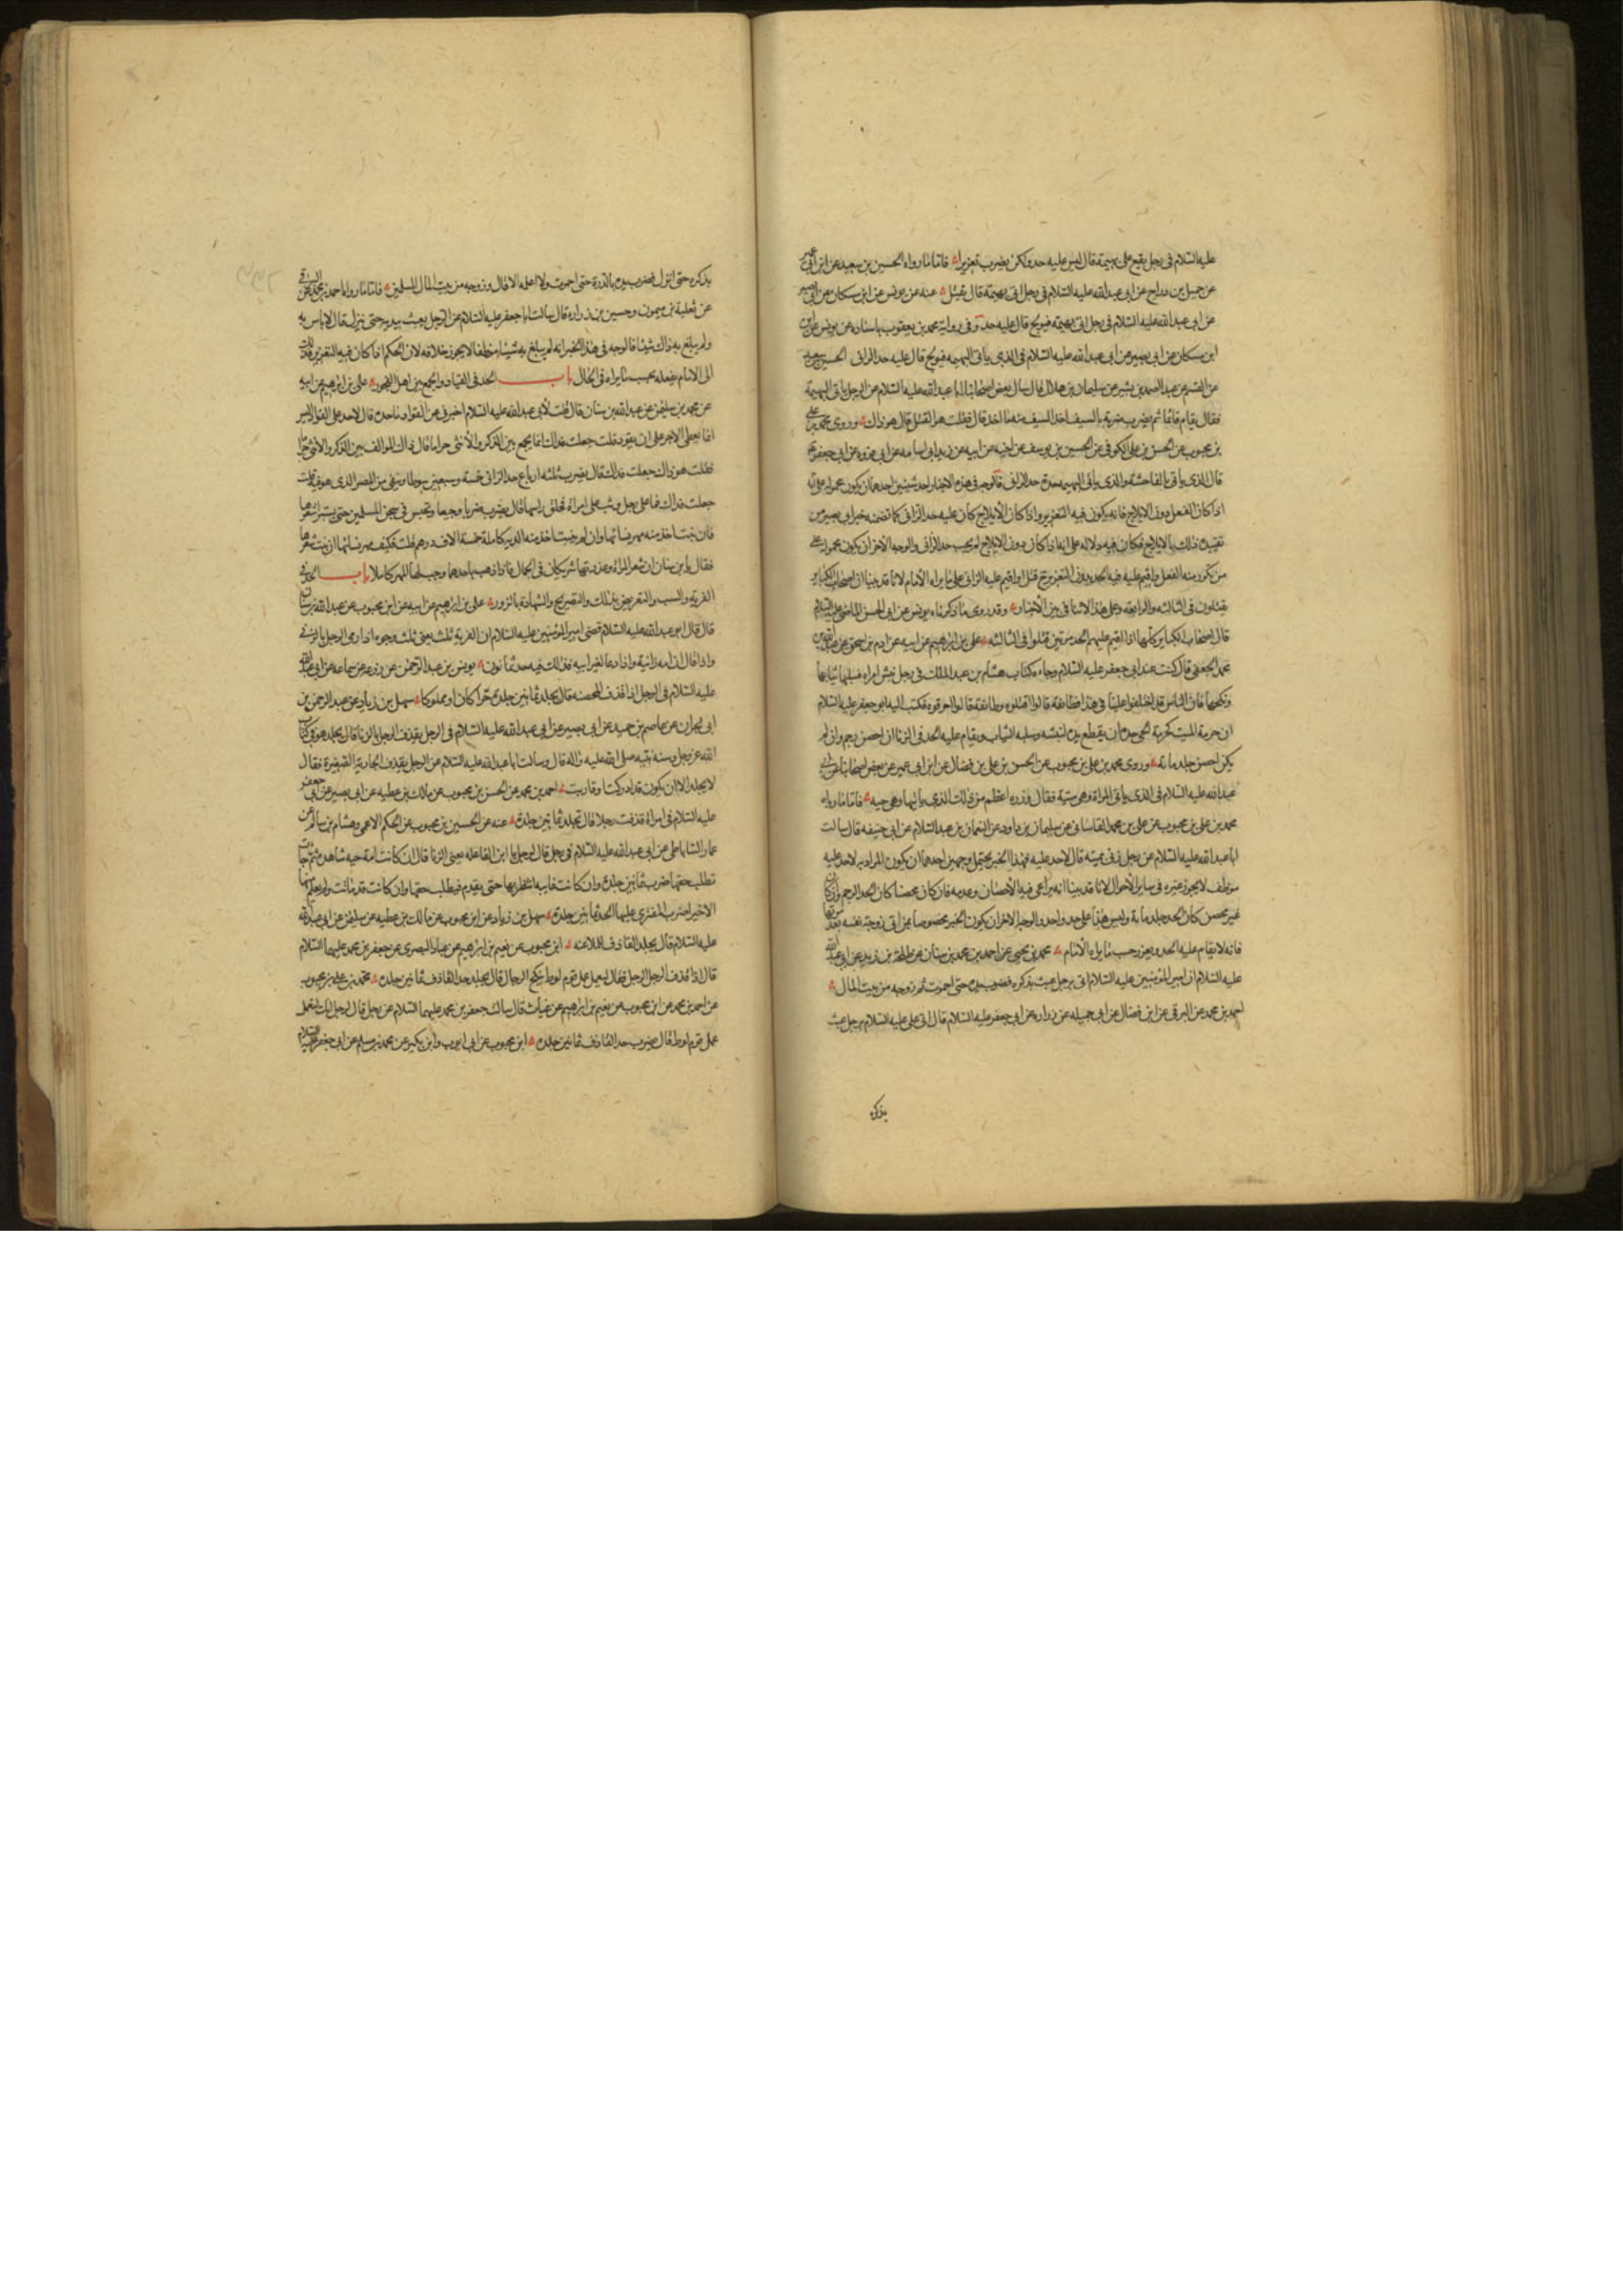 عليه السلام في رجل يقع على بهيمة قال ليس عليه حد ولكن يضرب تعزيرا فاما ما رواه الحسين بن سعيد عن ابن ابي عمير
عن جميل بن دراج عن ابي عبد الله عليه السلام في رجل اتى بهيمة قال يقتل عنه عن يونس عن ابن مسكان عن ابي بصير
عن ابي عبد الله عليه السلام في رجل اتى بهيمة فيولج قال عليه حد وفي رواية محمد بن يعقوب باسناده عن يونس عن
ابن مسكان عن ابي بصير عن ابي عبد الله عليه السلام في الذي ياتي البهيمة فيولج قال عليه حد الزاني الحسين بن سعيد
عن القسم عن عبد الصمد بن بشير عن سليمان بن هلال قال سال بعض اصحابنا ابا عبد الله عليه السلام عن الرجل ياتي البهيمة
فقال يقام قائما ثم يضرب ضربة بالسيف اخذ السيف منه ما اخذ قال فقلت هو القتل قال هو ذاك وروى محمد بن علي
بن محبوب عن الحسن بن علي الكوفي عن الحسين بن يوسف عن اخيه عن ابيه عن زيد ابي اسامة عن ابي فروة عن ابي جعفر
قال الذي ياتي بالفاحشة والذي ياتي البهيمة حده حد الزاني فالوجه في هذه الاخبار احد شيئين احدهما ان يكون محمولة على انه
اذا كان الفعل دون الايلاج فانه يكون فيه التعزير واذا كان الايلاج كان عليه حد الزاني كما تضمنه خبر ابي بصير من
تقييده ذلك بالايلاج فكان فيه دلالة على انه اذا كان دون الايلاج لم يجب حد الزاني والوجه الاخر ان يكون محمولة على
من تكرر منه الفعل واقيم عليه فيه الحد بدون التعزير قتل او اقيم عليه الزاني على ما يراه الامام لانا قد بينا ان اصحاب الكبائر
يقتلون في الثالثة والرابعة وعلى هذا لا تنافي بين الاخبار وقد روى ما ذكرناه يونس عن ابي الحسن الماضي عليه السلام
قال اصحاب الكبائر كلها اذا اقيم عليهم الحد مرتين قتلوا في الثالثة علي بن ابراهيم عن ابيه عن ادم بن اسحق عن عبد الله بن
محمد الجعفي قال كنت عند ابي جعفر عليه السلام وجاءه كتاب هشام بن عبد الملك في رجل نبش امراة فسلبها ثيابها
ونكحها فان الناس قد اختلفوا علينا في هذا فطائفة قالوا اقتلوه وطائفة قالوا احرقوه فكتب اليه ابو جعفر عليه السلام
ان حرمة الميت كحرمة الحي حده ان يقطع يده لنبشه وسلبه الثياب ويقام عليه الحد في الزنا ان احصن رجم وان لم
يكن احصن جلد مائة وروى محمد بن علي بن محبوب عن الحسن بن علي بن فضال عن ابن ابي عمير عن بعض اصحابنا عن ابي
عبد الله عليه السلام في الذي ياتي المراة وهي ميتة فقال وزره اعظم من ذلك الذي ياتيها وهي حية فاما ما رواه
محمد بن علي بن محبوب عن علي بن محمد القاساني عن سليمان بن داود عن النعمان بن عبد السلام عن ابي حنيفة قال سالت
ابا عبد الله عليه السلام عن رجل زنى بميتة قال لا حد عليه فهذا الخبر يحتمل وجهين احدهما ان يكون المراد به لا حد عليه
موظف لا يجوز غيره في ساير الاحوال لانا قد بينا انه يراعى فيه الاحصان وعدمه فان كان محصنا كان الحد الرجم وان كان
غير محصن كان الحد جلد مائة وليس هنا على حد واحد والوجه الاخر ان يكون الخبر مخصوصا بمن اتى زوجة نفسه بعد موتها
فانه لا يقام عليه الحد ويعزر حسب ما يراه الامام محمد بن يحيى عن احمد بن محمد عن محمد بن سنان عن طلحة بن زيد عن ابي عبد الله
عليه السلام ان امير المؤمنين عليه السلام اتى برجل عبث بذكره فضرب يده حتى احمرت ثم زوجه من بيت المال
احمد بن محمد عن البرقي عن ابن فضال عن ابي جميلة عن زرارة عن ابي جعفر عليه السلام قال اتى علي عليه السلام برجل عبث
بذكره
بذكره حتى انزل فضرب يده بالدرة حتى احمرت ولا اعلمه الا قال وزوجه من بيت مال المسلمين فاما ما رواه احمد بن محمد عن البرقي
عن ثعلبة بن ميمون وحسين بن زرارة قال سالت ابا جعفر عليه السلام عن الرجل يعبث بيديه حتى ينزل قال لا باس به
ولم يبلغ به ذاك شيئا فالوجه في هذا الخبر انه لم يبلغ به شيئا موظفا لا يجوز خلافه لان الحكم اذا كان فيه التعزير فذلك
الى الامام يفعله بحسب ما يراه في الحال باب الحد في القيادة والجمع بين اهل الفجور علي بن ابراهيم عن ابيه
عن محمد بن سليمن عن عبد الله بن سنان قال قلت لابي عبد الله عليه السلام اخبرني عن القواد ما حده قال لا حد على القواد اليس
انما يعطى الاجر على ان يقود قلت جعلت فداك انما يجمع بين الذكر والانثى حراما قال ذاك المؤلف بين الذكر والانثى حراما
فقلت هو ذاك جعلت فداك قال يضرب ثلثة ارباع حد الزاني خمسة وسبعين سوطا وينفى من المصر الذي هو فيه قلت
جعلت فداك فما على رجل وثب على امراة فحلق راسها قال يضرب ضربا وجيعا ويحبس في سجن المسلمين حتى يستبرا شعرها
فان نبت اخذ منه مهر نسائها وان لم ينبت اخذ منه الدية كاملة خمسة الاف درهم قلت فكيف مهر نسائها ان نبت شعرها
فقال يا بن سنان ان شعر المراة وعذرتها شريكان في الجمال فاذا ذهب باحدهما وجب لها المهر كاملا باب الحد في
الفرية والسب والتعريض بذلك والتصريح والشهادة بالزور علي بن ابراهيم عن ابيه عن ابن محبوب عن عبد الله بن سنان
قال قال ابو عبد الله عليه السلام قضى امير المؤمنين عليه السلام ان الفرية ثلث يعني ثلث وجوه اذا رمى الرجل بالزنى
واذا قال ان امه زانية واذا دعا لغير ابيه فذلك فيه حد ثمانون يونس بن عبد الرحمن عن زرعة عن سماعة عن ابي عبد الله
عليه السلام في الرجل اذا قذف المحصنة قال يجلد ثمانين جلدة حرا كان او مملوكا سهل بن زياد عن عبد الرحمن بن
ابي نجران عن عاصم بن حميد عن ابي بصير عن ابي عبد الله عليه السلام في الرجل يقذف الرجل بالزنا قال يجلد هو في كتاب
الله عز وجل وسنة نبيه صلى الله عليه واله قال وسالت ابا عبد الله عليه السلام عن الرجل يقذف الجارية الصغيرة فقال
لا يجلد الا ان يكون قد ادركت او قاربت احمد بن محمد عن الحسن بن محبوب عن مالك بن عطية عن ابي بصير عن ابي جعفر
عليه السلام في امراة قذفت رجلا قال تجلد ثمانين جلدة عنه عن الحسين بن محبوب عن الحكم الاعمى وهشام بن سالم عن
عمار الساباطي عن ابي عبد الله عليه السلام في رجل قال لرجل يا ابن الفاعلة يعني الزنا قال ان كانت امه حية شاهدة ثم جاءت
تطلب حقها ضرب ثمانين جلدة وان كانت غايبة انتظر بها حتى يقدم فيطلب حقها وان كانت قد ماتت ولم يعلم منها
الا خير ضرب المفتري عليها الحد ثمانين جلدة سهل بن زياد عن ابن محبوب عن مالك بن عطية عن سليمن عن ابي عبد الله
عليه السلام قال يجلد القاذف للملاعنة ابن محبوب عن نعيم بن ابراهيم عن عباد البصري عن جعفر بن محمد عليهما السلام
قال اذا قذف الرجل الرجل فقال يعمل عمل قوم لوط ينكح الرجال قال يجلد حد القاذف ثمانين جلدة محمد بن علي بن محبوب
عن احمد بن محمد عن ابن محبوب عن نعيم بن ابراهيم عن غياث قال سالت جعفر بن محمد عليهما السلام عن رجل قال لرجل انك لتعمل
عمل قوم لوط قال يضرب حد القاذف ثمانين جلدة ابن محبوب عن ابي ايوب وابن بكير عن محمد بن مسلم عن ابي جعفر عليه السلام